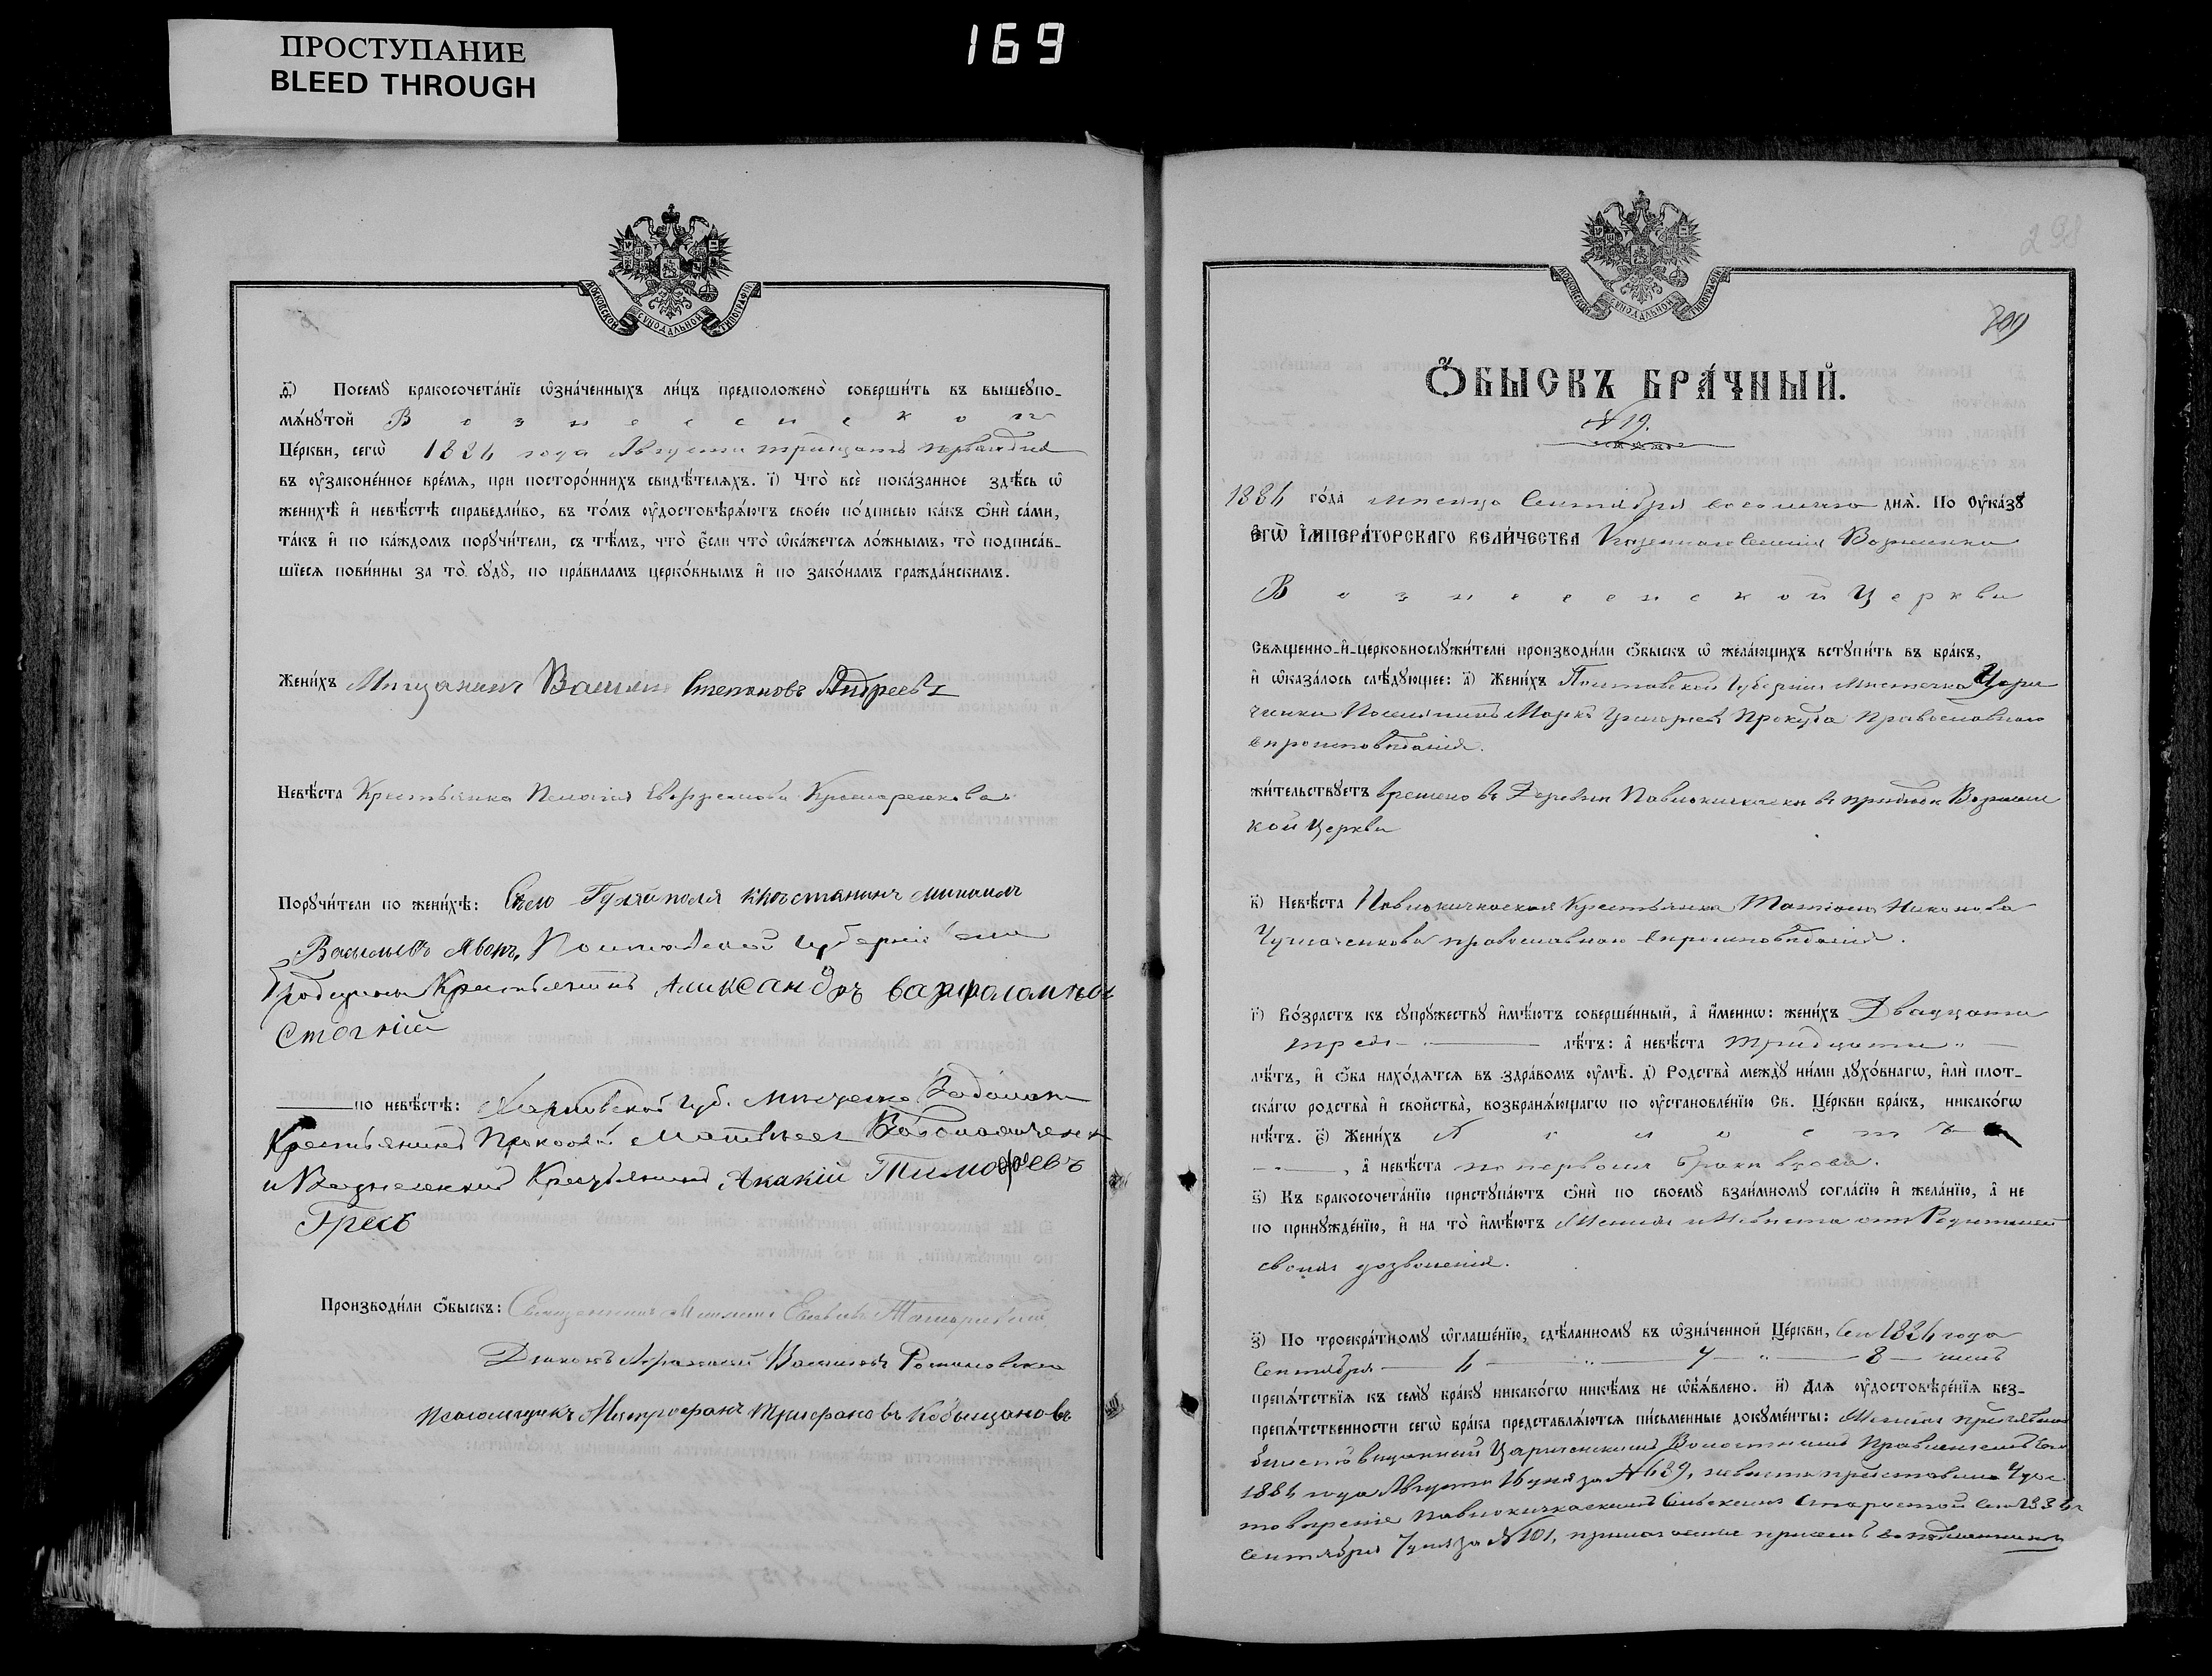 ПРОСТУПАНИЕ
BLEED THROUGH
169
МОСКОВСКОЙ СѴНОДАЛЬНОЙ ТИПОГРАФІИ
ѳ҃) Посемꙋ бракосочета́нїе ѡ҆зна́ченныхъ ли́цъ предположено̀ соверши́ть въ вышеꙋпо-
мѧ́нꙋтой Вознесенской
Це́ркви, сегѡ̀ 1884 года Августа тридцать перваго дня
въ ᲂу҆зако́не́нное вре́мѧ, при посторо́ннихъ свидѣ́телѧхъ. і҃) Что̀ всѐ пока́занное здѣ́сь ѡ҆
женихѣ̀ и҆ невѣ́стѣ справедли́во, въ то́мъ ᲂу҆достовѣрѧ́ютъ свое́ю по́дписью ка́къ ѻ҆нѝ са́ми,
та́къ и҆ по ка́ждомъ порꙋчи́тели, съ тѣ́мъ, что̀ є҆́сли что̀ ѡ҆ка́жетсѧ ло́жнымъ, то̀ подписа́в-
шїесѧ пови́нны за то̀ сꙋдꙋ̀, по пра́виламъ церко́внымъ и҆ по зако́намъ гражда́нскимъ.
Жени́хъ Мещанинъ Степановъ Андреевъ
Невѣ́ста Крестьянка Пелагія
Порꙋчи́тели по женихѣ̀: Село Гуляйполя кръстянинъ
Васильевъ Явонъ, Полтавской Губерніи
Крестьянинъ Александръ варфоломѣевъ
Стогній
по невѣ́стѣ: Харьковской Губ.
Крестьянинъ Прокофій Матвѣевъ
и Вознесенскій Крестьянинъ Акакій Тимофѣевъ
Гресь
Производи́ли ѻ҆́быскъ: Священникъ
Діаконъ Афанасій Васильевъ Романовскій
псаломщикъ Митрофанъ Трифоновъ Кобыщановъ
298
299
МОСКОВСКОЙ СѴНОДАЛЬНОЙ ТИПОГРАФІИ
Ѻ҆́БЫСКЪ БРА́ЧНЫЙ.
№ 19.
1884 го́да мѣсяца Сентября восьмаго днѧ̀. По Оу҆ка́зꙋ
Є҆ГѠ̀ И҆МПЕРА́ТОРСКАГО ВЕЛИ́ЧЕСТВА Казеннаго Селенія Вознесенки
Вознесенской Церкви
Свѧще́нно-и҆-церковнослꙋжи́тели производи́ли ѻ҆́быскъ ѡ҆ жела́ющихъ встꙋпи́ть въ бра́къ,
и҆ ѡ҆каза́лось слѣ́дꙋющее: а҃) Жени́хъ Полтавской Губерніи Мѣстечка Цари
чанки Поселянинъ Маркъ Григорьевъ Прокуда Православнаго
вѣроисповѣданія.
жи́тельствꙋетъ времено въ Деревни Павлокичкаски въ приходѣ Вознесен
кой Церкви
в҃) Невѣ́ста Павлокичкаская Крестьянка Татіана Никонова
Чумаченкова православнаго вѣроисповѣданія.
г҃) Во́зрастъ къ сꙋпрꙋ́жествꙋ и҆мѣ́ютъ соверше́нный, а҆ и҆́меннѡ: жени́хъ Двадцати
трехъ лѣ́тъ: а҆ невѣ́ста тридцати
лѣ́тъ, и҆ ѻ҆́ба нахо́дѧтсѧ въ здра́вомъ ᲂу҆мѣ̀. д҃) Родства̀ междꙋ̀ ни́ми дꙋхо́внагѡ, и҆лѝ плот-
ска́гѡ родства̀ и҆ сво́йства, возбранѧ́ющагѡ по ᲂу҆становле́нїю Св. Це́ркви бра́къ, никако́гѡ
нѣ́тъ. є҃) Жени́хъ Холостъ
, а҆ невѣ́ста по первомъ бракѣ вдова.
ѕ҃) Къ бракосочета́нїю пристꙋпа́ютъ ѻ҆нѝ по своемꙋ̀ взаи́мномꙋ согла́сїю и҆ жела́нїю, а҆ не
по принꙋжде́нїю, и҆ на то̀ и҆мѣ́ютъ Женихъ и Невѣста отъ Родителей
своихъ дозволенія.
з҃) По троекра́тномꙋ ѡ҆глаше́нїю, сдѣ́ланномꙋ въ ѡ҆зна́ченной Це́ркви, сего 1884 года
Сентября 4 7 8 чиселъ
препѧ́тствїѧ къ семꙋ̀ бра́кꙋ никако́гѡ никѣ́мъ не ѡ҆б̾ѧ́влено. и҃) Длѧ ᲂу҆достовѣре́нїѧ без-
препѧ́тственности сегѡ̀ бра́ка представлѧ́ютсѧ пи́сьменные докꙋме́нты: Женихъ представилъ
билетъ выданный Царичанскимъ Волостнымъ Правленіемъ сего
1884 года Августа 16 дня за № 639, невѣста представила Удос
товѣреніе Павлокичкаскимъ Сельскимъ Старостой сего 1884 г
Сентября 7 дня за № 101,